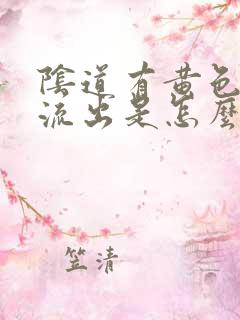 陰道有黃色
流出是怎麼
笠清